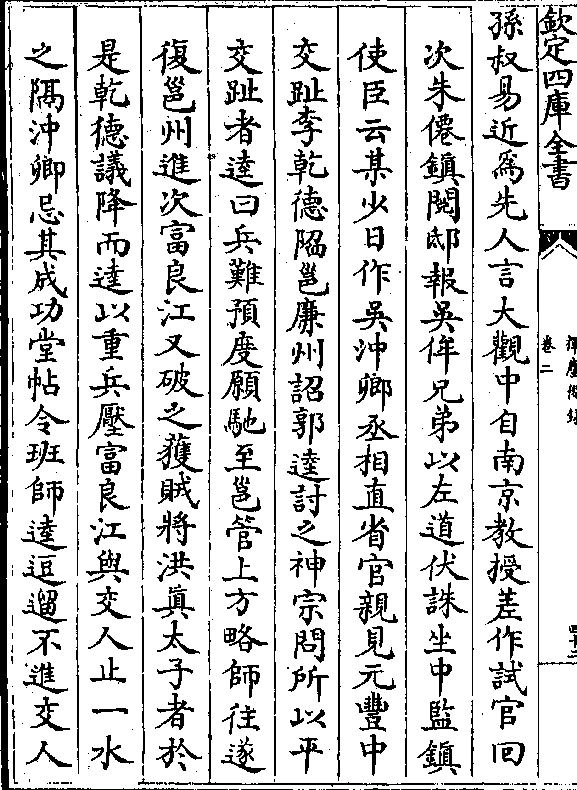 欽定四庫全書
揮麈後録
卷二
孫叔易近爲先人言大觀中自南京教授差作試官回
次朱僊鎮閱邸報吳侔兄弟以左道伏誅坐中監鎮
使臣云某少日作吳沖卿丞相直省官親見元豐中
交趾李乾德陷邕廉州詔郭逵討之神宗問所以平
交趾者逵曰兵難預度願馳至邕管上方略師往遂
復邕州進次富良江又破之獲賊將洪眞太子者於
是乾德議降而逵以重兵壓富良江與交人止一水
之隔沖卿忌其成功堂帖令班師逵逗遛不進交人